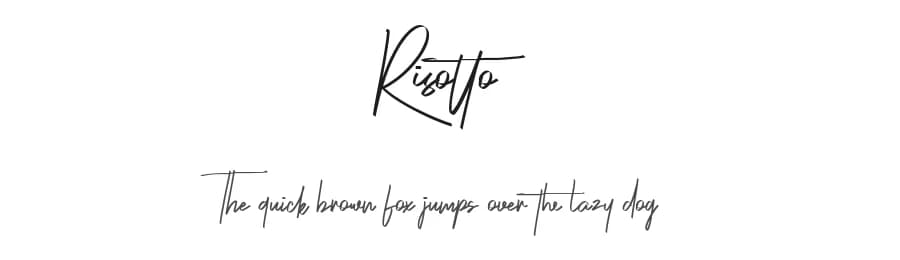 Risotto
The quick brown fox jumps over the lazy dog